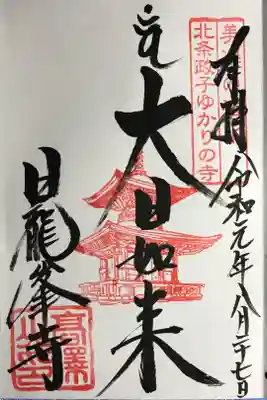 奉拝
令和元年八月二十七日
北条政子ゆかりの寺
大日如来
日龍峯寺